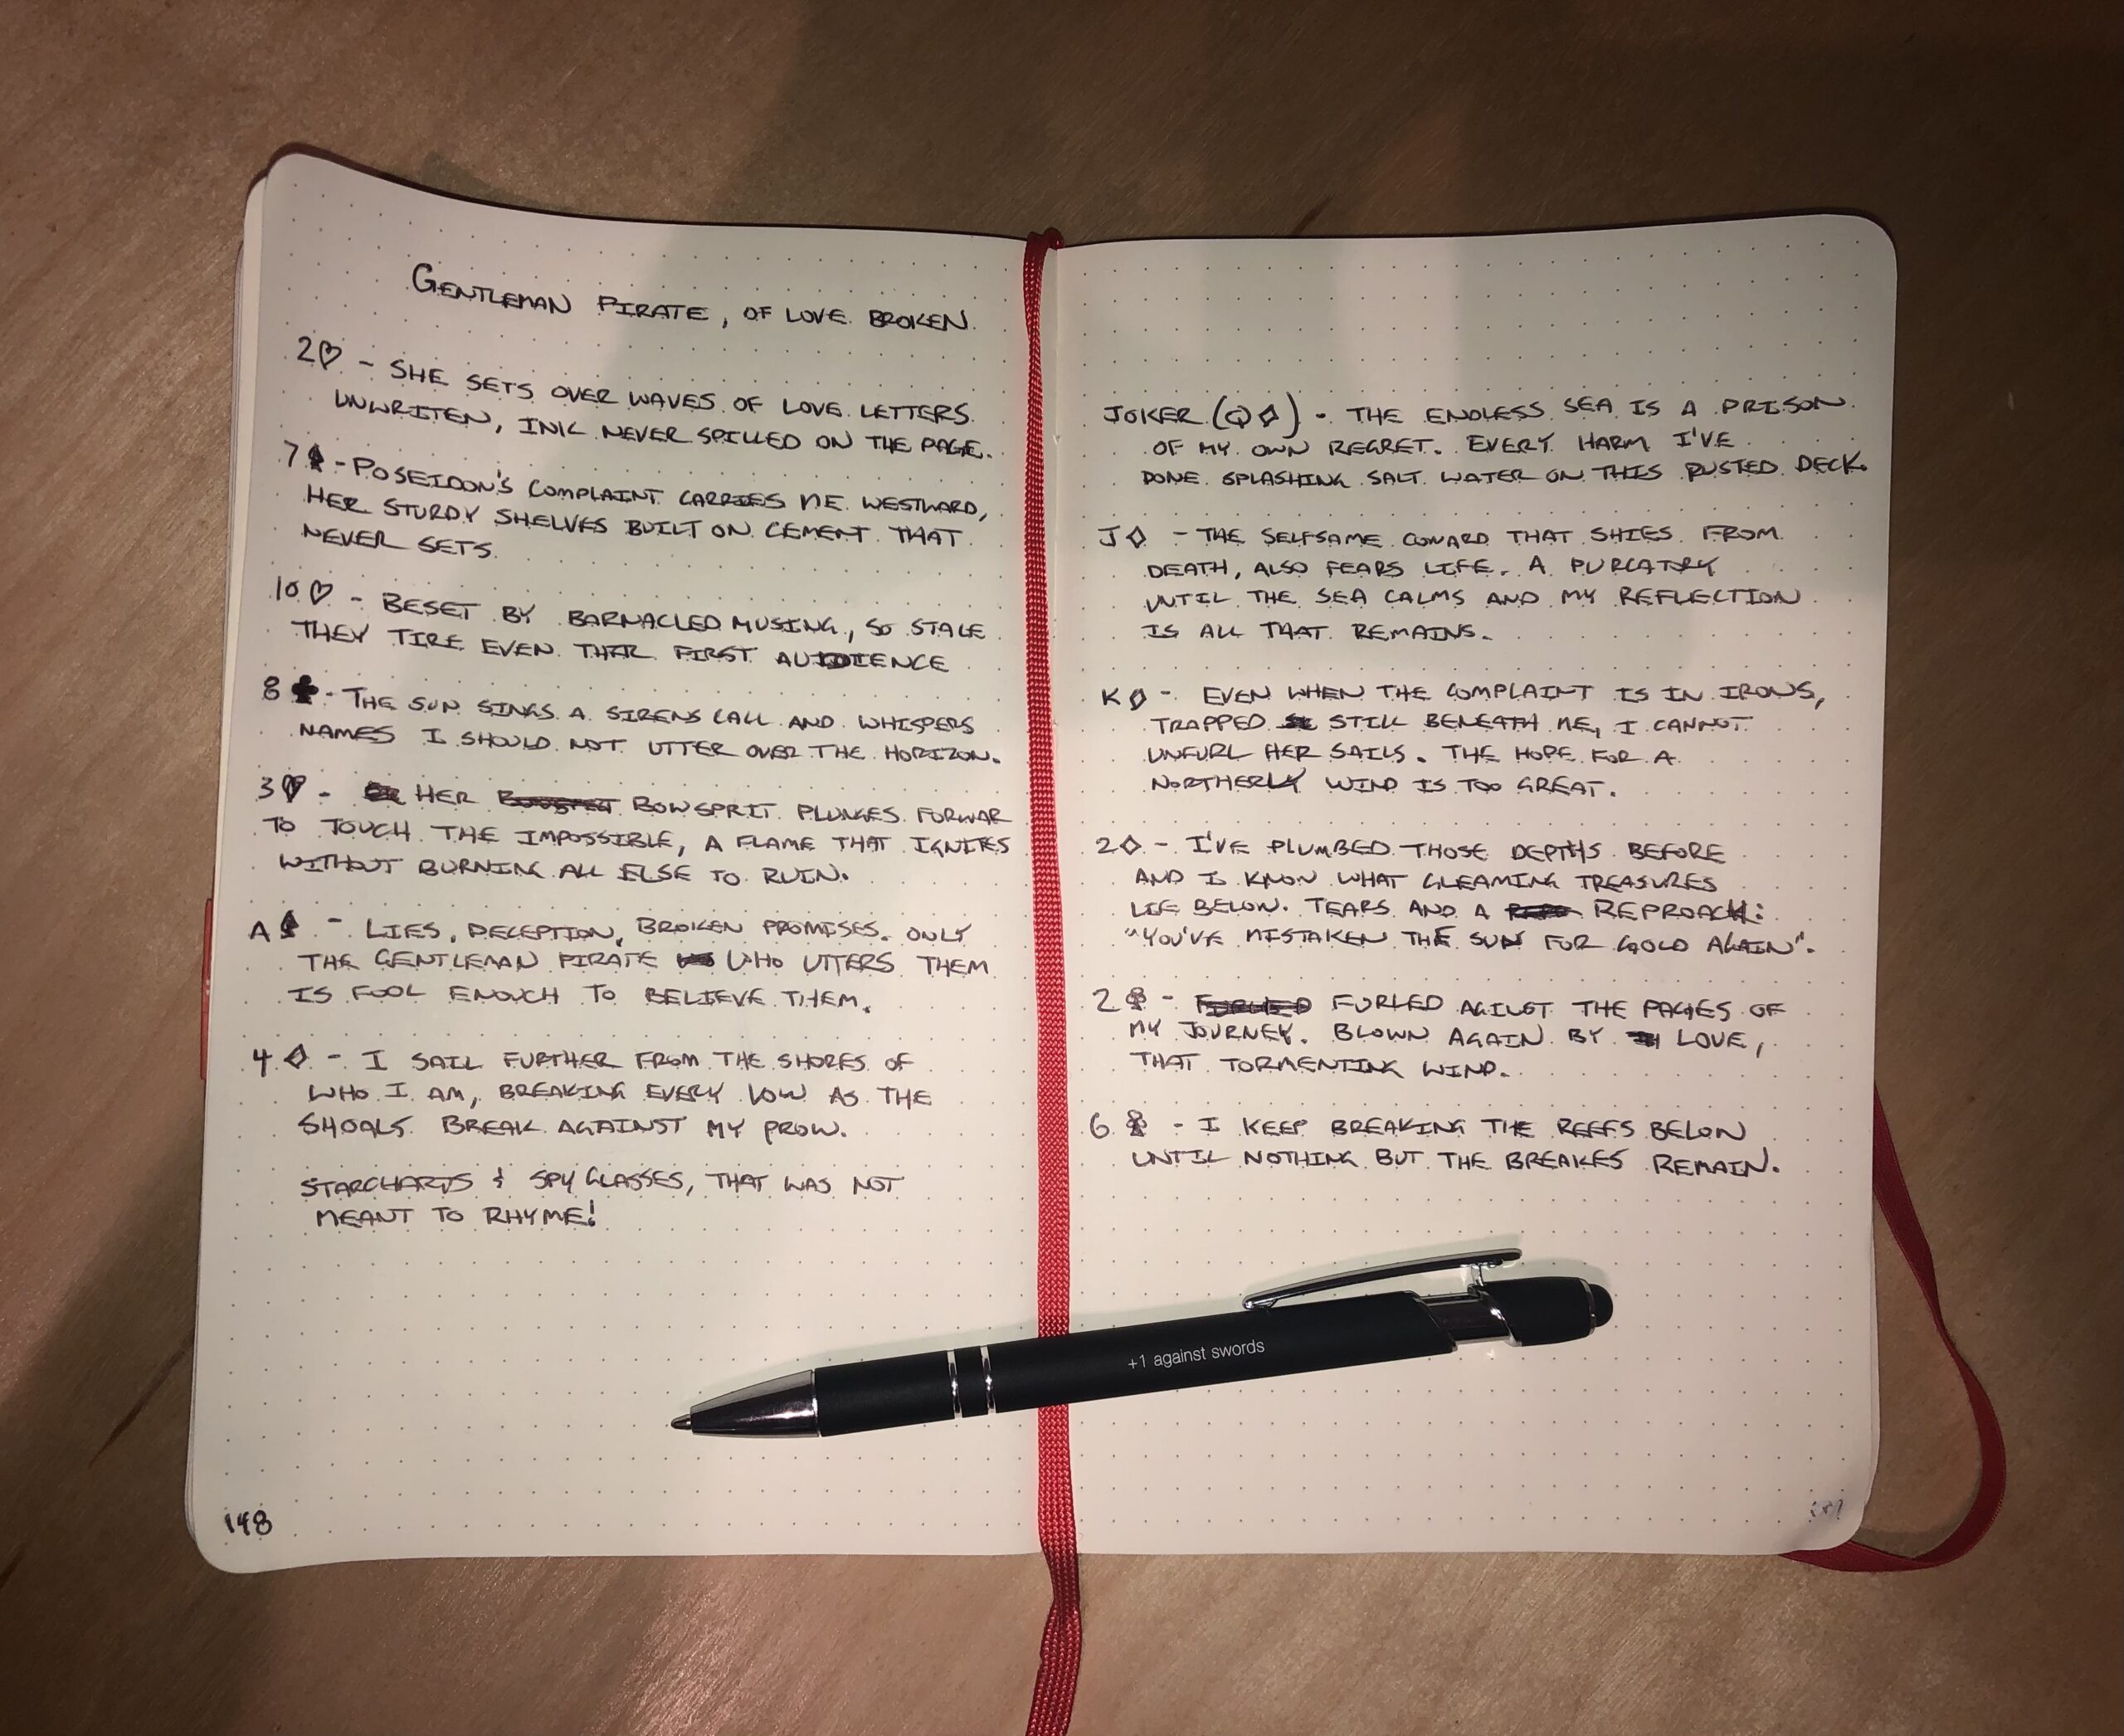 GENTLEMAN PIRATE, OF LOVE BROKEN
2♡ - SHE SETS OVER WAVES OF LOVE LETTERS
UNWRITEN, INK NEVER SPILLED ON THE PAGE.
7♠ - POSEIDON'S COMPLAINT CARRIES ME WESTWARD,
HER STURDY SHELVES BUILT ON CEMENT THAT
NEVER SETS.
10♡ - BESET BY BARNACLED MUSING, SO STALE
THEY TIRE EVEN THEIR FIRST AUDIENCE
8♣ - THE SUN SINGS A SIRENS CALL AND WHISPERS
NAMES I SHOULD NOT UTTER OVER THE HORIZON.
3♡ - HER BOWSPRIT PLUNGES FORWAR
TO TOUCH THE IMPOSSIBLE, A FLAME THAT IGNITES
WITHOUT BURNING ALL ELSE TO RUIN.
A♠ - LIES, DECEPTION, BROKEN PROMISES. ONLY
THE GENTLEMAN PIRATE WHO UTTERS THEM
IS FOOL ENOUGH TO BELIEVE THEM.
4♢ - I SAIL FURTHER FROM THE SHORES OF
WHO I AM, BREAKING EVERY VOW AS THE
SHOALS BREAK AGAINST MY PROW.
STARCHARTS & SPY GLASSES, THAT WAS NOT
MEANT TO RHYME!
148
JOKER (Q♢) - THE ENDLESS SEA IS A PRISON
OF MY OWN REGRET. EVERY HARM I'VE
DONE SPLASHING SALT WATER ON THIS RUSTED DECK.
J♢ - THE SELFSAME COWARD THAT SHIES FROM
DEATH, ALSO FEARS LIFE. A PURGATORY
UNTIL THE SEA CALMS AND MY REFLECTION
IS ALL THAT REMAINS.
K♢ - EVEN WHEN THE COMPLAINT IS IN IRONS,
TRAPPED STILL BENEATH ME, I CANNOT
UNFURL HER SAILS. THE HOPE FOR A
NORTHERLY WIND IS TOO GREAT.
2♢ - I'VE PLUMBED THOSE DEPTHS BEFORE
AND I KNOW WHAT GLEAMING TREASURES
LIE BELOW. TEARS AND A REPROACH:
"YOU'VE MISTAKEN THE SUN FOR GOLD AGAIN".
2♣ - FURLED THE PAGES OF
MY JOURNEY. BLOWN AGAIN BY LOVE,
THAT TORMENTING WIND.
6♣ - I KEEP BREAKING THE REEFS BELOW
UNTIL NOTHING BUT THE BREAKES REMAIN.
+1 against swords